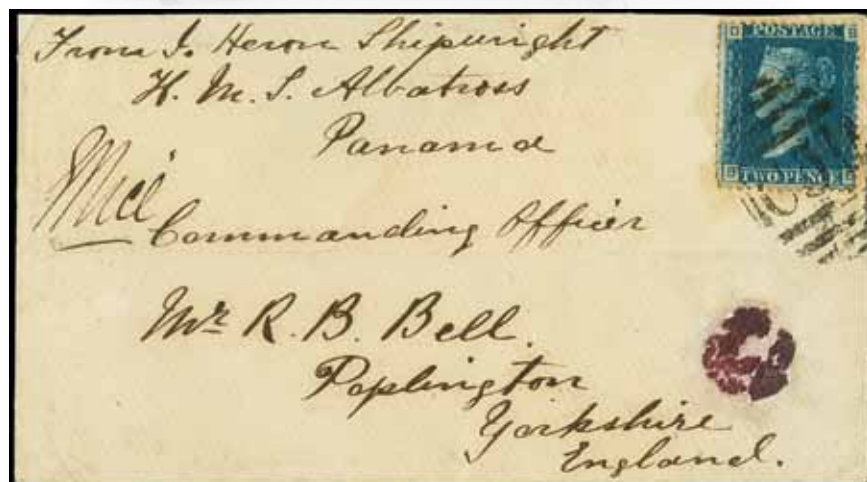 From J. Heron Shipwright
H. M. S. Albatross
Panama
Commanding Officer
Mr R. B. Bell.
Poplington
Yorkshire
England.
POSTAGE
TWO PENCE